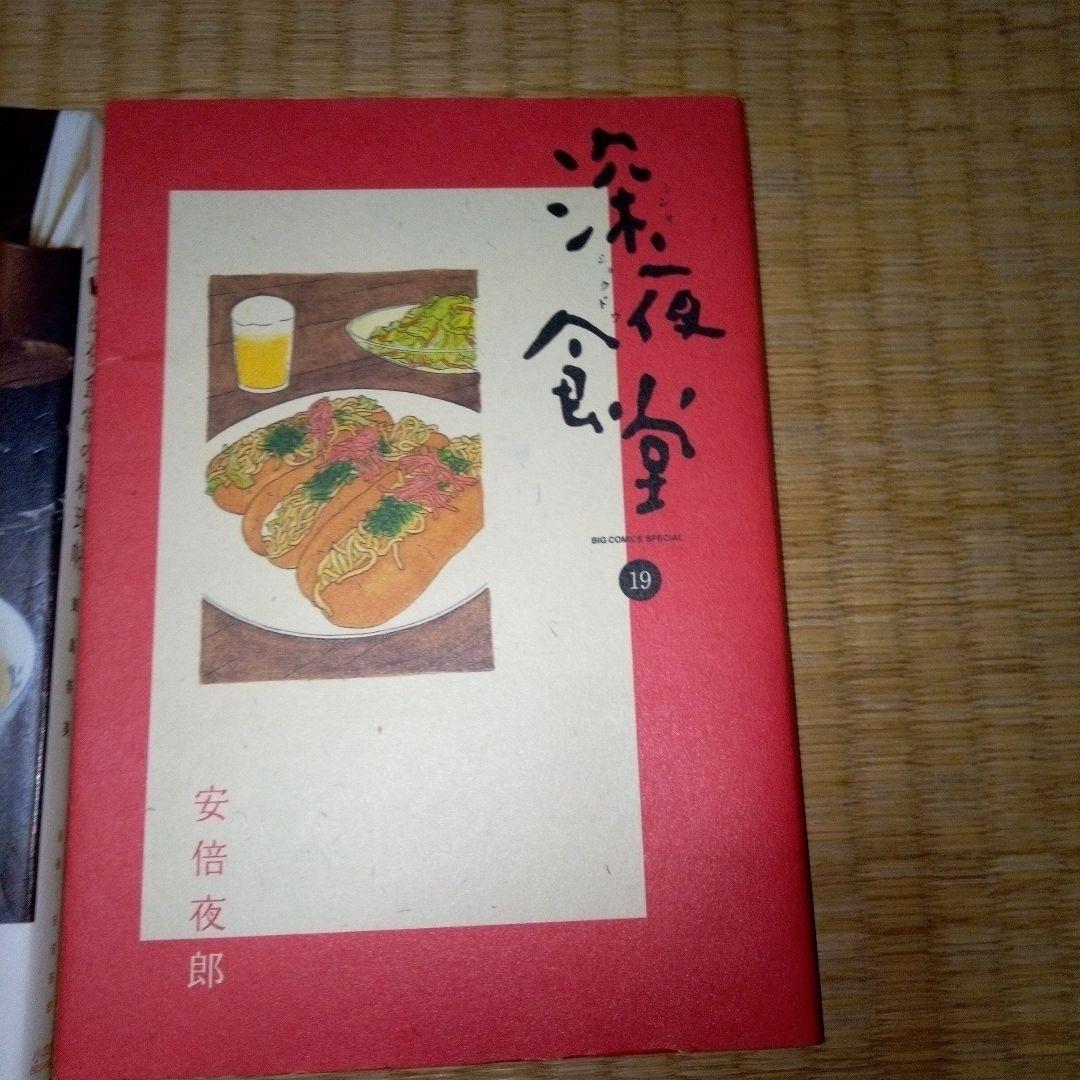 深夜食堂
シンヤ
ショクドウ
BIG COMICS SPECIAL
19
安倍夜郎